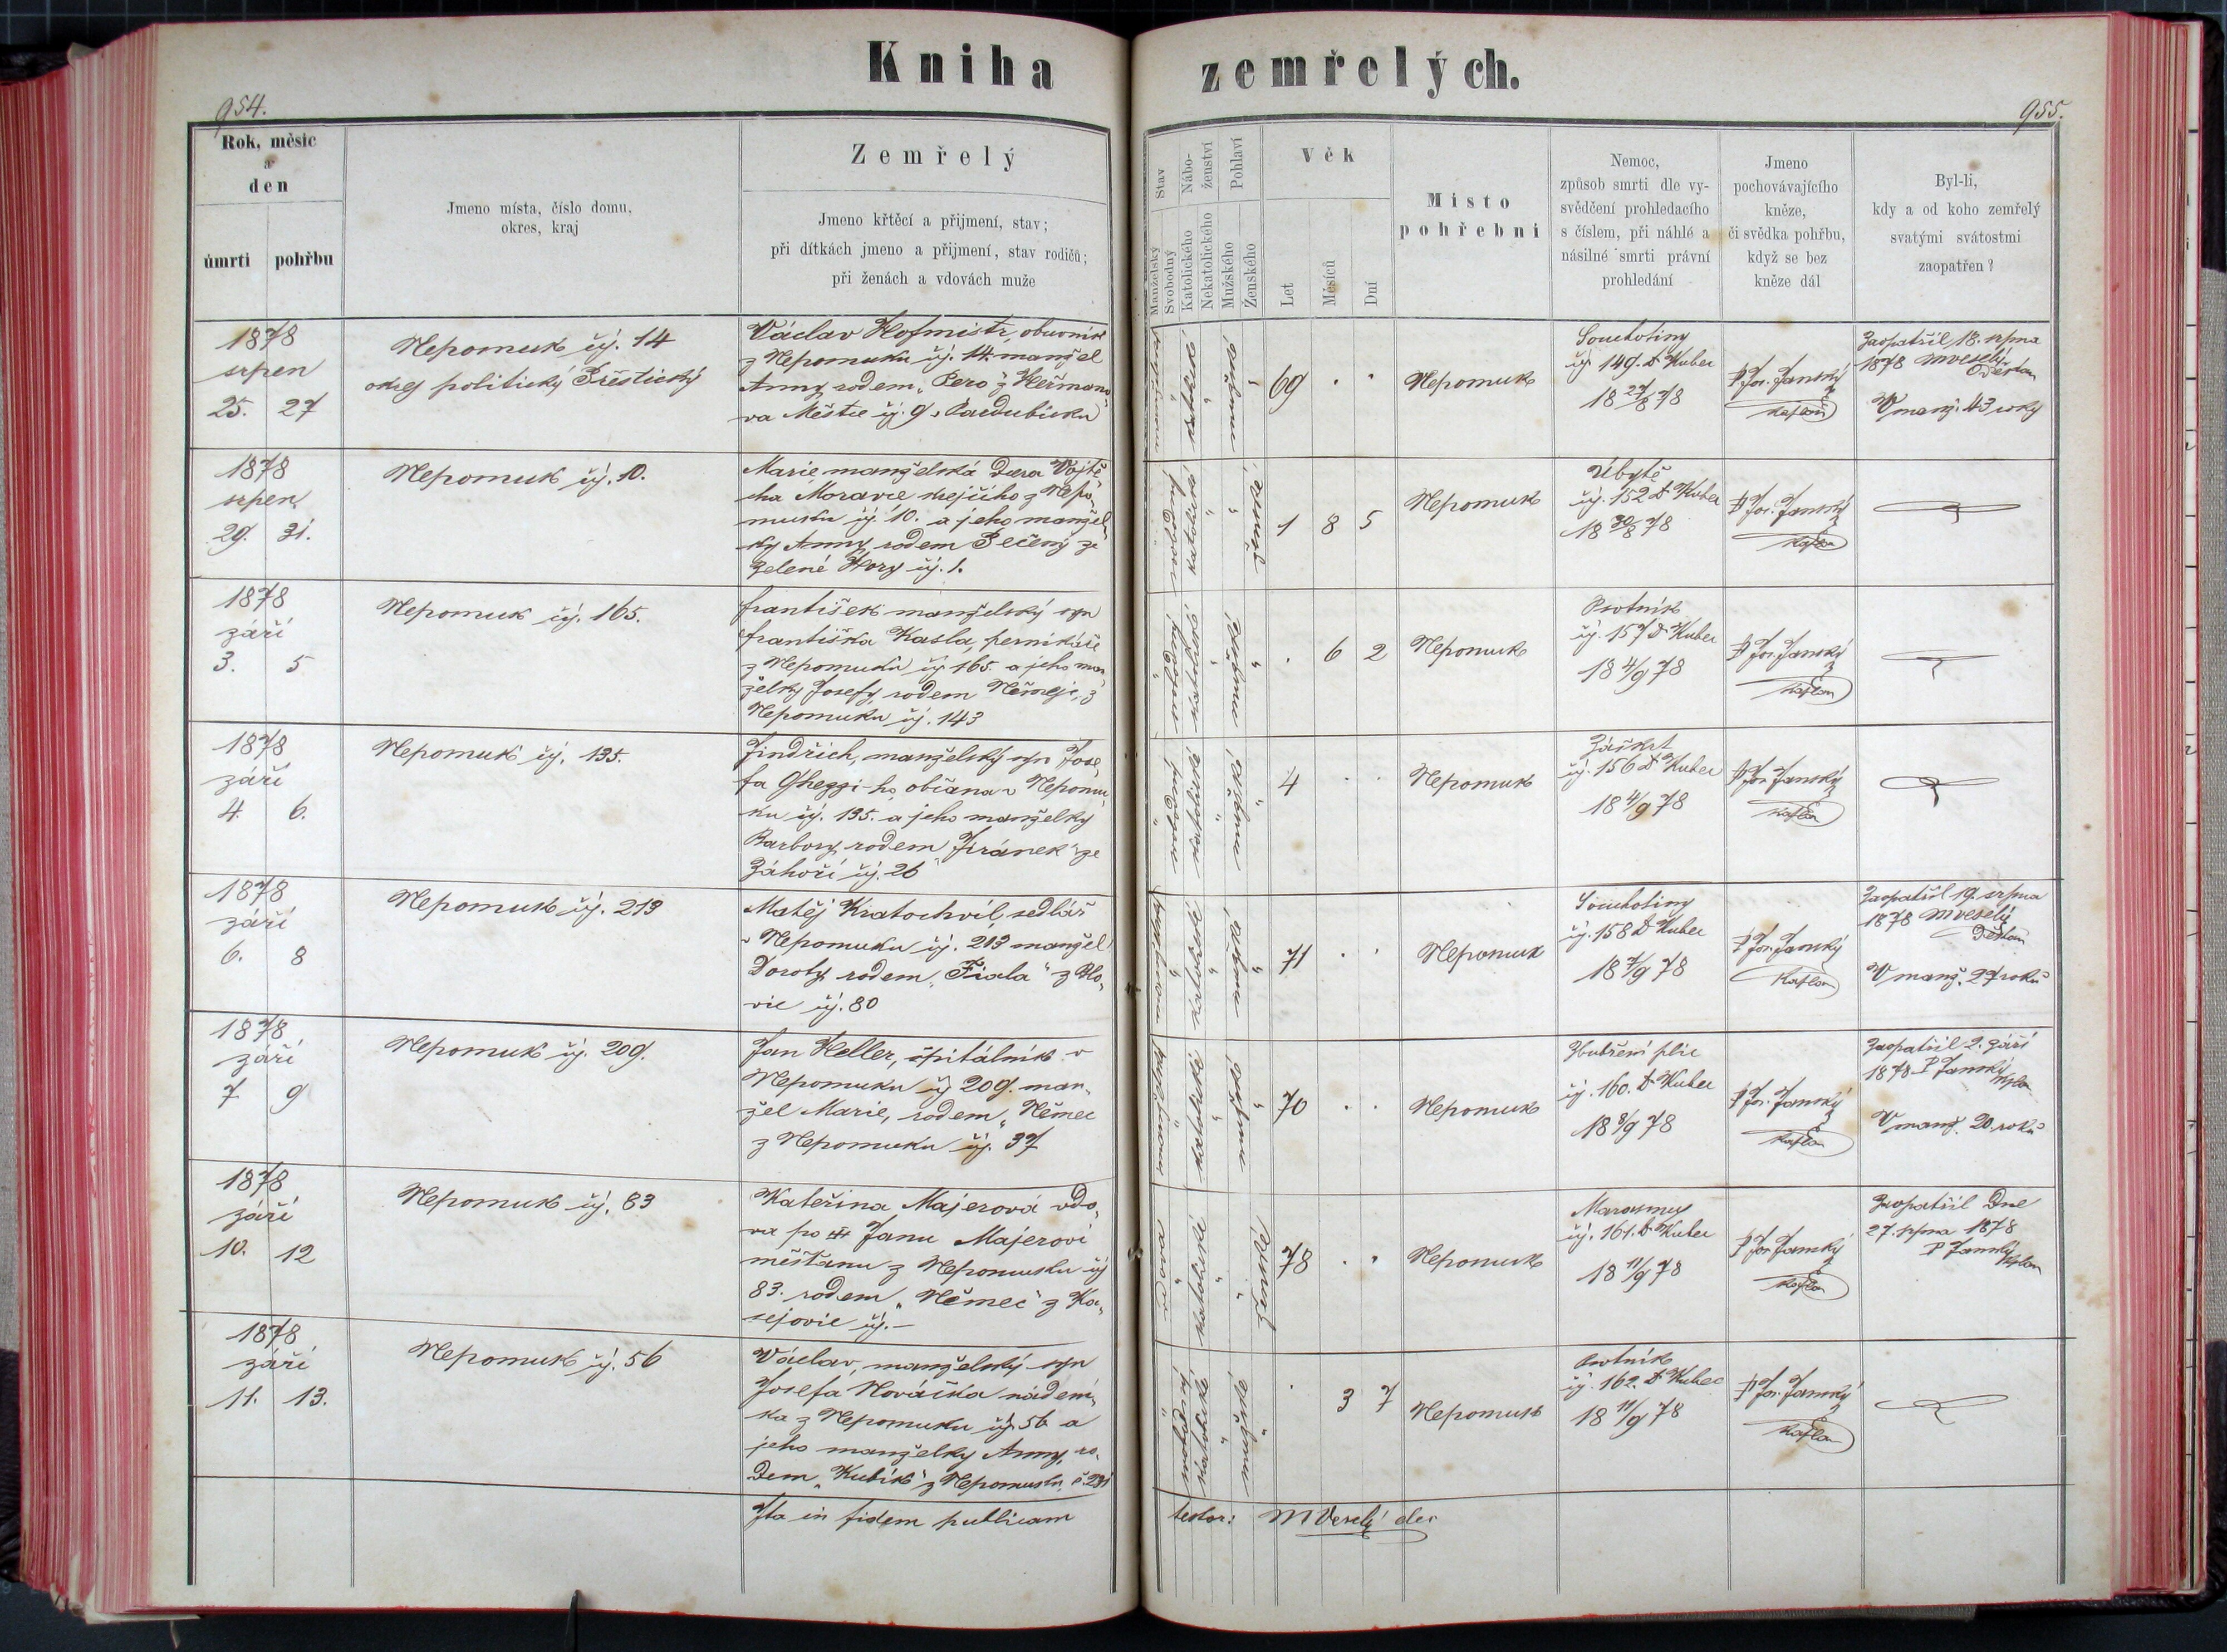 Kniha zemřelých.
954.
955.
Rok, měsíc
a
den
úmrtí
pohřbu
Jmeno místa, číslo domu,
okres, kraj
Zemřelý
Jmeno křtěcí a přijmení, stav;
při dítkách jmeno a přijmení, stav rodičů;
při ženách a vdovách muže
Stav
Manželský
Svobodný
Nábo-
ženství
Katolického
Nekatolického
Pohlaví
Mužského
Ženského
Věk
Let
Měsíců
Dní
Místo
pohřební
Nemoc,
způsob smrti dle vy-
svědčení prohledacího
s číslem, při náhlé a
násilné smrti právní
prohledání
Jmeno
pochovávajícího
kněze,
či svědka pohřbu,
když se bez
kněze dál
Byl-li,
kdy a od koho zemřelý
svatými svátostmi
zaopatřen?
1878
srpen
25. 27
Nepomuk čj. 14
okres politický Přeštický
Václav Hofmistr, obuvník
z Nepomuku čj. 14. manžel
Anny rodem „Pero“ z Heřmano-
va Městce čj. 9, Pardubicku
katolické
69
Nepomuk
Souchotiny
čj. 149. Dr Kuber
18 27/8 78
P Jos. Janský
kaplan
Zaopatřil 18. srpna
1878 MVeselý
Děkan
V manž. 43 roky
1878
srpen
29. 31.
Nepomuk čj. 10.
Marie manželská dcera Vojtě-
cha Moravce krejčího z Nepo-
muku čj. 10. a jeho manžel-
ky Anny rodem Pečený ze
Zelené Hory čj. 1.
katolické
ženské
1 8 5
Nepomuk
Úbytě
čj. 152 Dr Kuber
18 30/8 78
P Jos. Janský
kaplan
1878
září
3. 5
Nepomuk čj. 165.
František manželský syn
Františka Kasla, perníkáře
z Nepomuku čj. 165. a jeho man-
želky Josefy rodem Němejc, z
Nepomuku čj. 143
katolické
6 2
Nepomuk
Psotník
čj. 157 Dr Kuber
18 4/9 78
P Jos. Janský
kaplan
1878
září
4. 6.
Nepomuk čj. 135.
Jindřich, manželský syn Jose-
fa Gheggi-ho, občana v Nepomu-
ku čj. 135. a jeho manželky
Barbory rodem „Jiránek“ ze
Záhoří čj. 26
katolické
4
Nepomuk
Záškrt
čj. 156 Dr Kuber
18 4/9 78
P Jos. Janský
kaplan
1878
září
6. 8
Nepomuk čj. 213
Matěj Kratochvíl, sedlář
v Nepomuku čj. 213 manžel
Doroty rodem „Fiala“ z Blo-
vic čj. 80
katolické
71
Nepomuk
Souchotiny
čj. 158 Dr Kuber
18 7/9 78
P Jos. Janský
kaplan
Zaopatřil 19. srpna
1878 MVeselý
Děkan
V manž. 27 roků
1878
září
7 9
Nepomuk čj. 209.
Jan Heller, špitálník v
Nepomuku čj 209. man-
žel Marie, rodem „Němec
z Nepomuku čj. 37
katolické
70
Nepomuk
Zbutření plic
čj. 160. Dr Kuber
18 8/9 78
P Jos. Janský
kaplan
Zaopatřil 2. září
1878 P Janský
kaplan
V manž. 20. roků
1878
září
10. 12
Nepomuk čj. 83
Kateřina Majerová vdo-
va po Janu Majerovi
měšťanu z Nepomuku čj
83. rodem „Němec“ z Ka-
sejovic čj. –
vdova
katolické
ženské
78
Nepomuk
Marasmus
čj. 161. Dr Kuber
18 11/9 78
P Jos. Janský
kaplan
Zaopatřil Dne
27. srpna 1878
P Janský
kaplan
1878
září
11. 13.
Nepomuk čj. 56
Václav, manželský syn
Josefa Nováčka nádení-
ka z Nepomuku čj. 56 a
jeho manželky Anny, ro-
dem „Kubík“ z Nepomuku
katolické
3 7
Nepomuk
Psotník
čj. 162. Dr Kuber
18 11/9 78
P Jos. Janský
kaplan
Ita in fidem publicam
testor: MVeselý